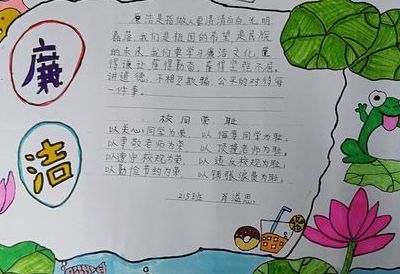 廉
洁
廉洁是指做人要清清白白,光明
磊落,我们是祖国的希望,是民族
的未来,我们要学习廉洁文化,懂
得谦让,懂得勤奋,懂得坚强不屈。
讲道德,不相互欺骗,公平的对待每
一件事。
校园荣耻
以关心同学为荣,以侮辱同学为耻,
以尊敬老师为荣,以顶撞老师为耻,
以遵守校规为荣,以违反校规为耻,
以勤俭节约为荣,以铺张浪费为耻。
215班 肖